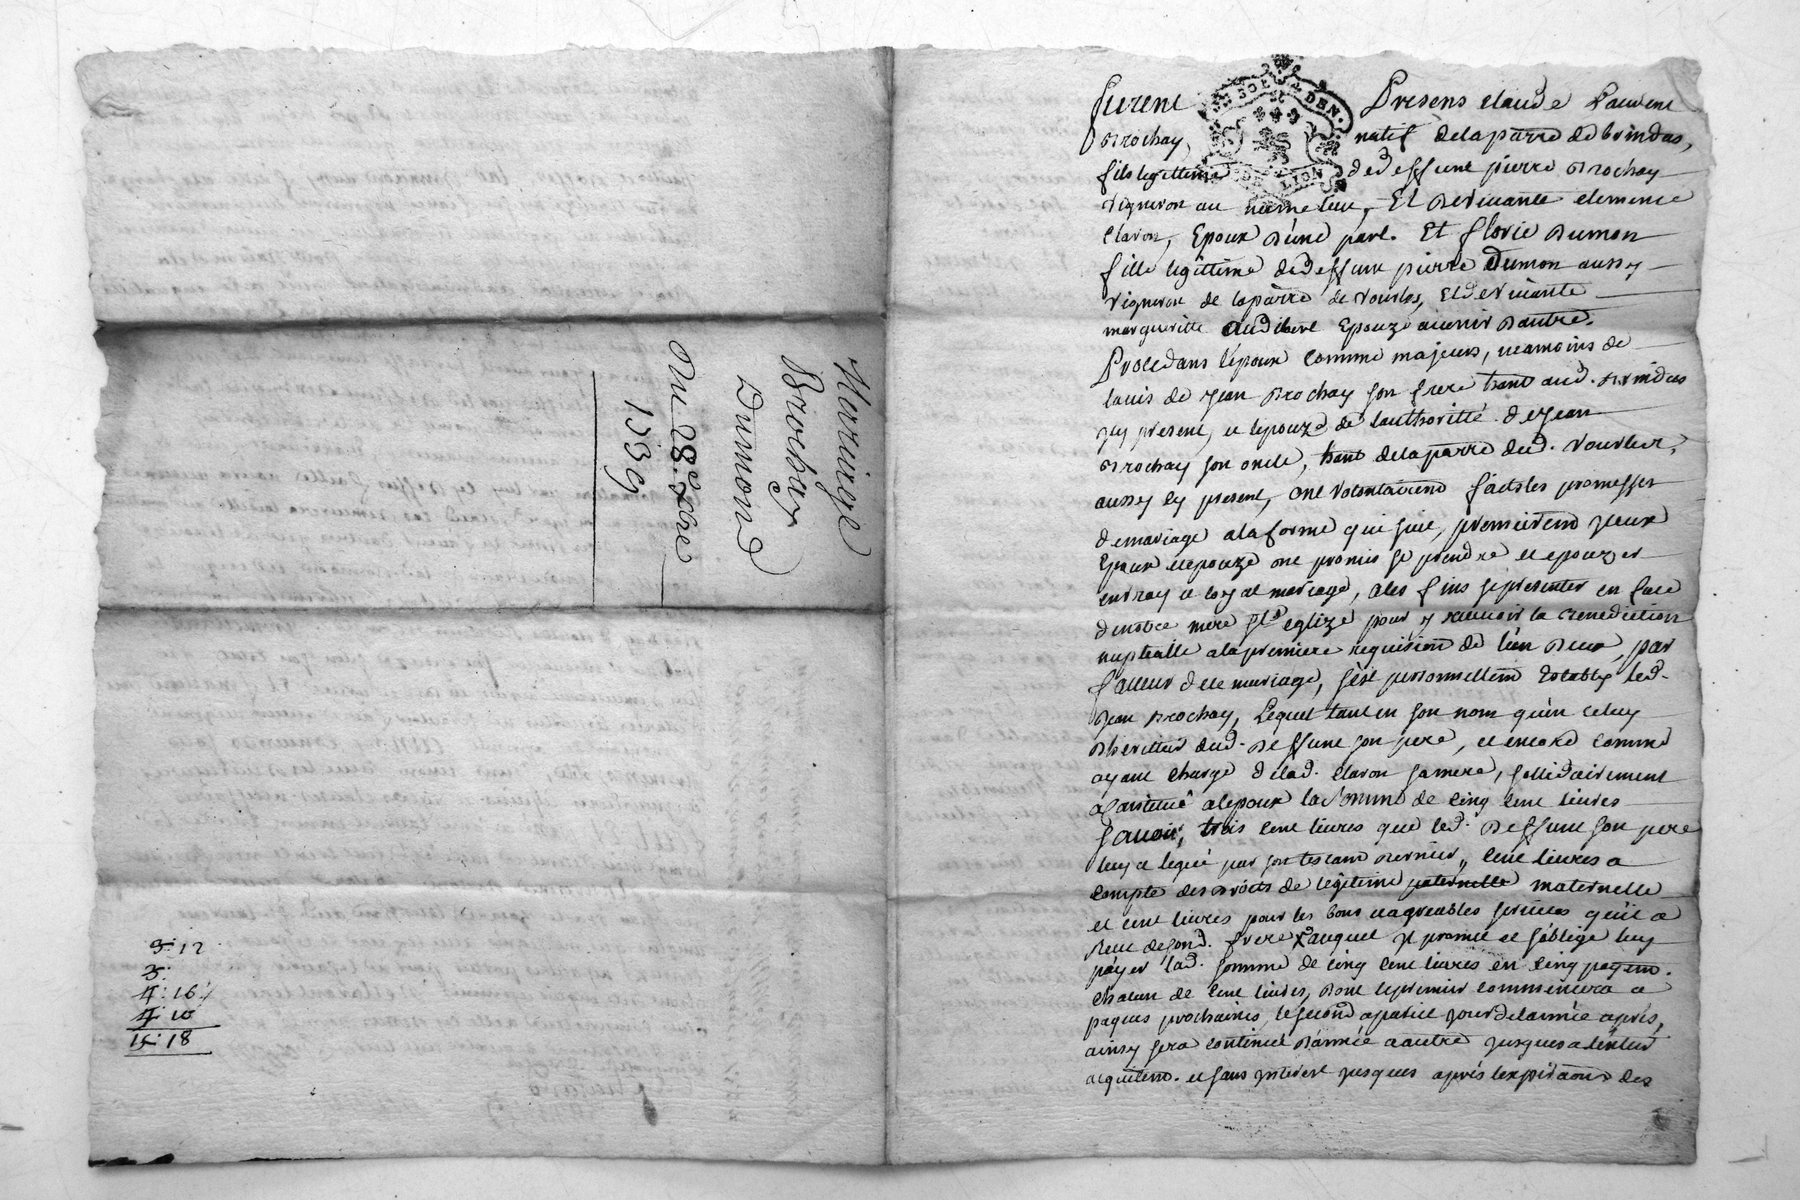 Mariage
Brochay
Dumond
Du 28.e xbre
1739
3: 12
3:
4: 16
4: 10
15: 18
GEN. DEN.
DE LION
furent Presens claude Laurent
Brochay, natif de la parre de brindas,
fils legittime de deffunt pierre Brochay
vigneron au meme lieu, Et De vivante clemence
Claron, Epoux D'une part. Et florie Dumon
fille legittime de deffunt pierre Dumon aussy
vigneron de la parre de vourles, Et de vivante
margueritte audibert Epouze avenir Dautre.
Procedans l'epoux comme majeur, neamoins de
lavis de jean Brochay son frere hant aud. Brindas
icy present, et lepouze de lauthoritté de jean
Brochay son oncle, hant de la parre dud. vourles,
aussy cy present, ont volontairem faits les promesses
de mariage a la forme qui suit, premierem yceux
Epoux et epouze ont promis se prendre et epouzer
en vray et loyal mariage, a les fins se presenter en face
de notre mere ste eglize pour y recevoir la benediction
nuptialle a la premiere requision de l'un Deux, par
faveur de ce mariage, s'est personnellem Etably led.
Jean Brochay, Lequel tant en son nom qu'en celuy
Dheritier dud. Deffunt son pere, et encore comme
ayant charge de lad. Claron sa mere, sollidairement
a constitué a lepoux la somme de cinq cent livres
savoir, trois cent livres que led. Deffunt son pere
luy a legué par son testam Dernier, cent livres a
compte des Droits de legitime paternelle maternelle
et cent livres pour les bons et agreables services qu'il a
Reçu de sond. frere auquel Il promet et s'oblige luy
payer lad. somme de cinq cent livres en cinq payem.
chacun de cent livres, Dont le premier commencera a
paques prochaines, le second a pareil jour de lannée aprés,
ainsy sera continué Dannée a autre jusques a lentier
acquitem. et sans Interest jusques aprés lexpiraon des